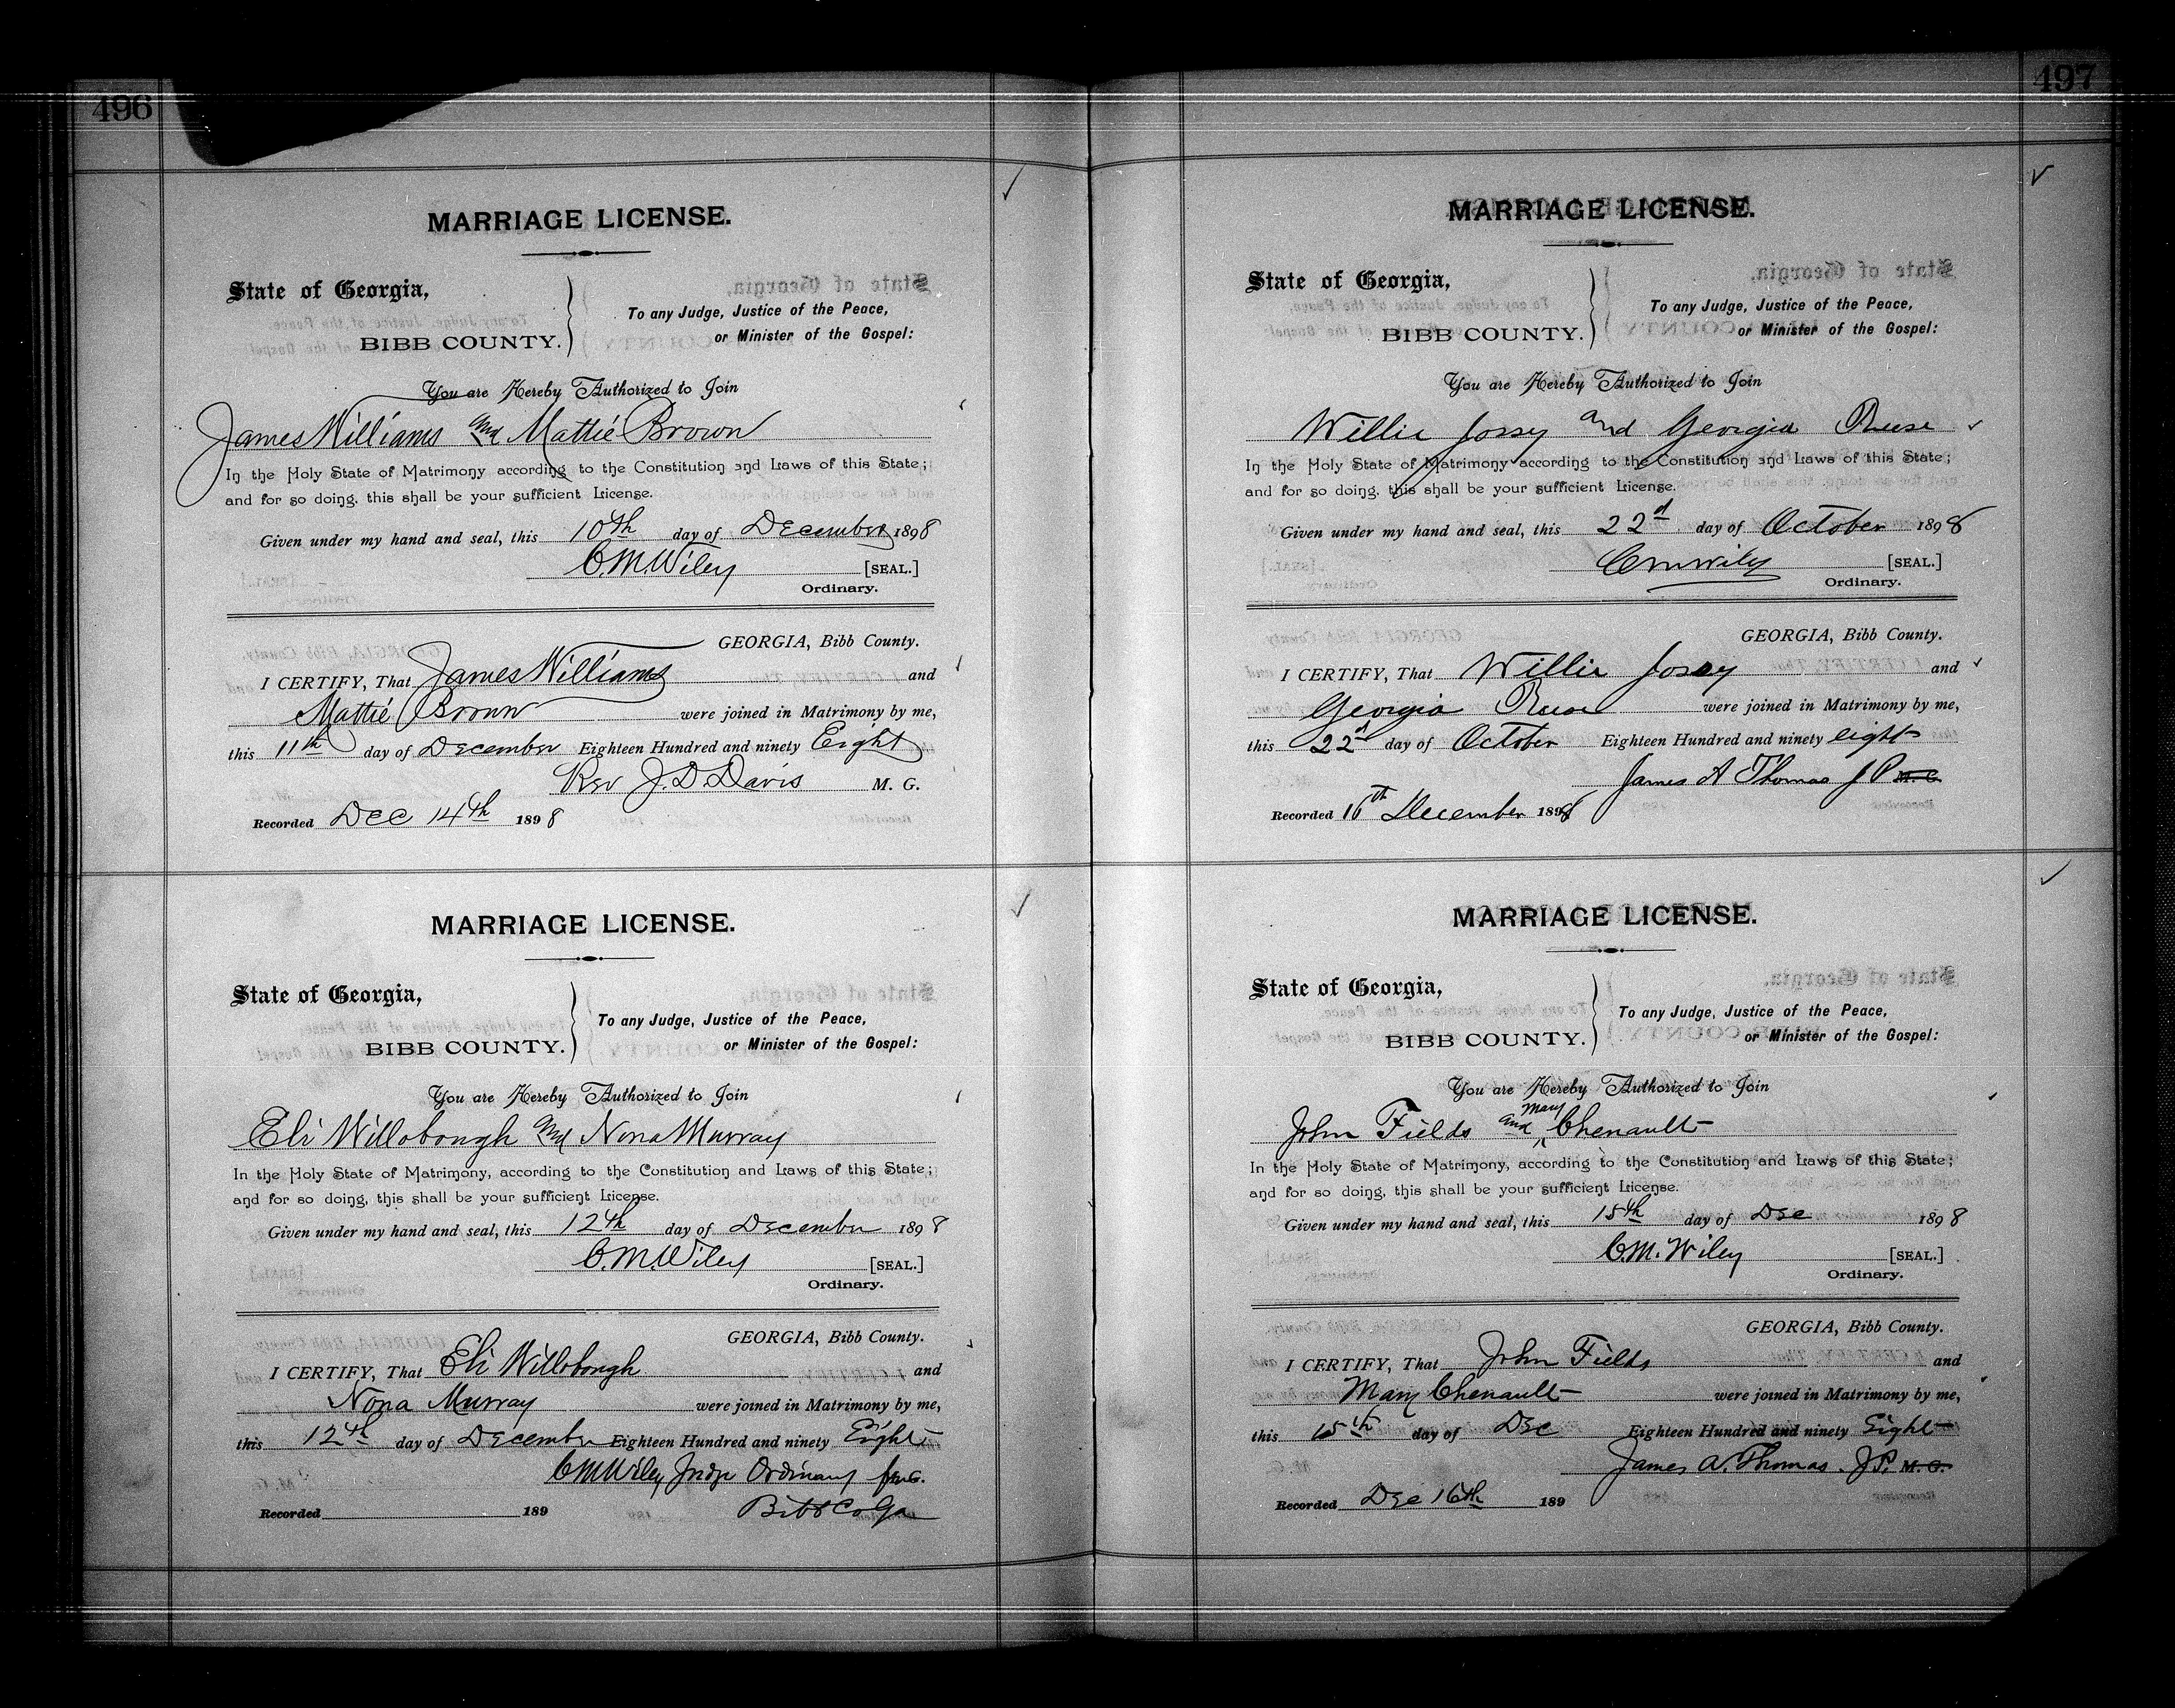 496
MARRIAGE LICENSE.
State of Georgia,
BIBB COUNTY.
To any Judge, Justice of the Peace,
or Minister of the Gospel:
You are Hereby Authorized to Join
James Williams and Mattie Brown
In the Holy State of Matrimony according to the Constitution and Laws of this State;
and for so doing, this shall be your sufficient License.
Given under my hand and seal, this 10th day of December 1898
C.M. Wiley [SEAL.]
Ordinary.
GEORGIA, Bibb County.
I CERTIFY, That James Williams and
Mattie Brown were joined in Matrimony by me,
this 11th day of December Eighteen Hundred and ninety Eight
Rev J. D. Davis M. G.
Recorded Dec 14th 1898
MARRIAGE LICENSE.
State of Georgia,
BIBB COUNTY.
To any Judge, Justice of the Peace,
or Minister of the Gospel:
You are Hereby Authorized to Join
Eli Willobough and Nona Murray
In the Holy State of Matrimony, according to the Constitution and Laws of this State;
and for so doing, this shall be your sufficient License.
Given under my hand and seal, this 12th day of December 1898
C.M. Wiley [SEAL.]
Ordinary.
GEORGIA, Bibb County.
I CERTIFY, That Eli Willobough and
Nona Murray were joined in Matrimony by me,
this 12th day of December Eighteen Hundred and ninety Eight
CM Wiley Judge Ordinary
Bibb Co Ga
Recorded 189
497
MARRIAGE LICENSE.
State of Georgia,
BIBB COUNTY.
To any Judge, Justice of the Peace,
or Minister of the Gospel:
You are Hereby Authorized to Join
Willie Jossy and Georgia Reese
In the Holy State of Matrimony according to the Constitution and Laws of this State;
and for so doing, this shall be your sufficient License.
Given under my hand and seal, this 22d day of October 1898
CM Wiley [SEAL.]
Ordinary.
GEORGIA, Bibb County.
I CERTIFY, That Willie Jossy and
Georgia Reese were joined in Matrimony by me,
this 22d day of October Eighteen Hundred and ninety eight
James A Thomas J P M. G.
Recorded 16th December 1898
MARRIAGE LICENSE.
State of Georgia,
BIBB COUNTY.
To any Judge, Justice of the Peace,
or Minister of the Gospel:
You are Hereby Authorized to Join
John Fields and Mary Chenault
In the Holy State of Matrimony, according to the Constitution and Laws of this State;
and for so doing, this shall be your sufficient License.
Given under my hand and seal, this 15th day of Dec 1898
C.M. Wiley [SEAL.]
Ordinary.
GEORGIA, Bibb County.
I CERTIFY, That John Fields and
Mary Chenault were joined in Matrimony by me,
this 15th day of Dec Eighteen Hundred and ninety Eight
James A. Thomas. J.P. M. G.
Recorded Dec 16th 189